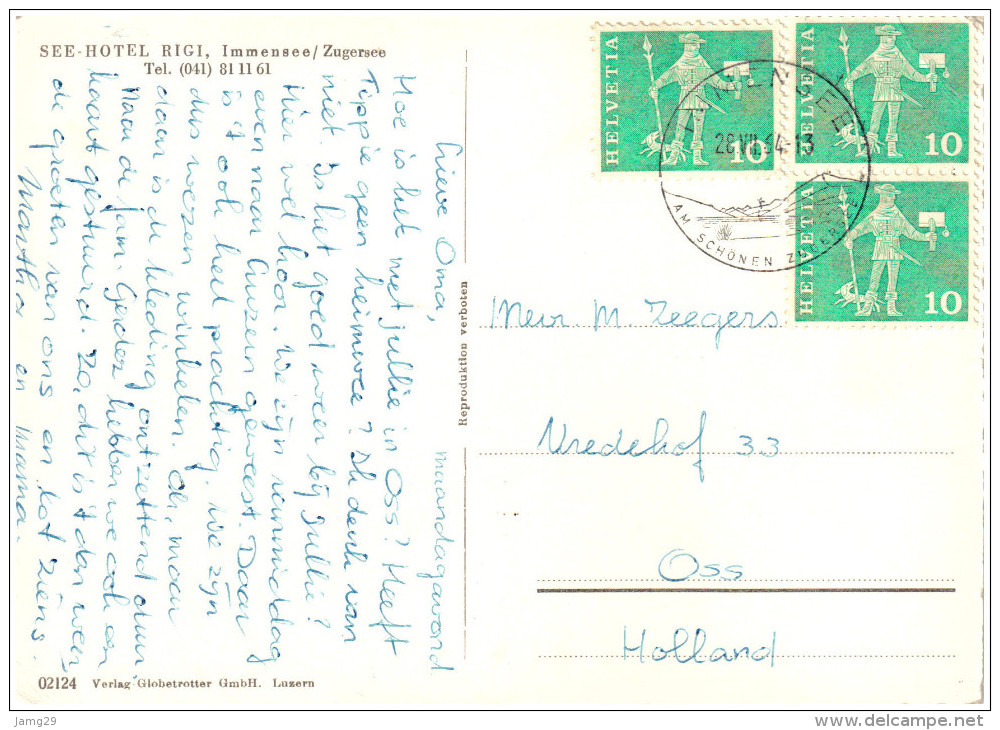 SEE-HOTEL RIGI, Immensee/Zugersee
Tel. (041) 81 11 61
maandagavond
Lieve Oma,
Hoe is het met jullie in Oss? Heeft
Toppie geen heimwee? Ik denk van
niet. Is het goed weer bij jullie?
Hier wel hoor. We zijn vanmiddag
even naar Luzern geweest. Daar
is 't ook heel prachtig. We zijn
dus wezen winkelen. Oh, maar
daar is de kleding ontzettend duur
Naar de fam. hebben we ook een
kaart gestuurd. Zo, dit is 't dan weer,
de groeten van ons en tot ziens.
Martha en Mama.
02124 Verlag Globetrotter GmbH. Luzern
Reproduktion verboten
HELVETIA 10
HELVETIA 10
HELVETIA 10
IMMENSEE
28.VII.64-13
AM SCHÖNEN ZUGERSEE
Mevr. M. Zeegers
Vredehof 33
Oss
Holland
Jamg29
delcampe.net